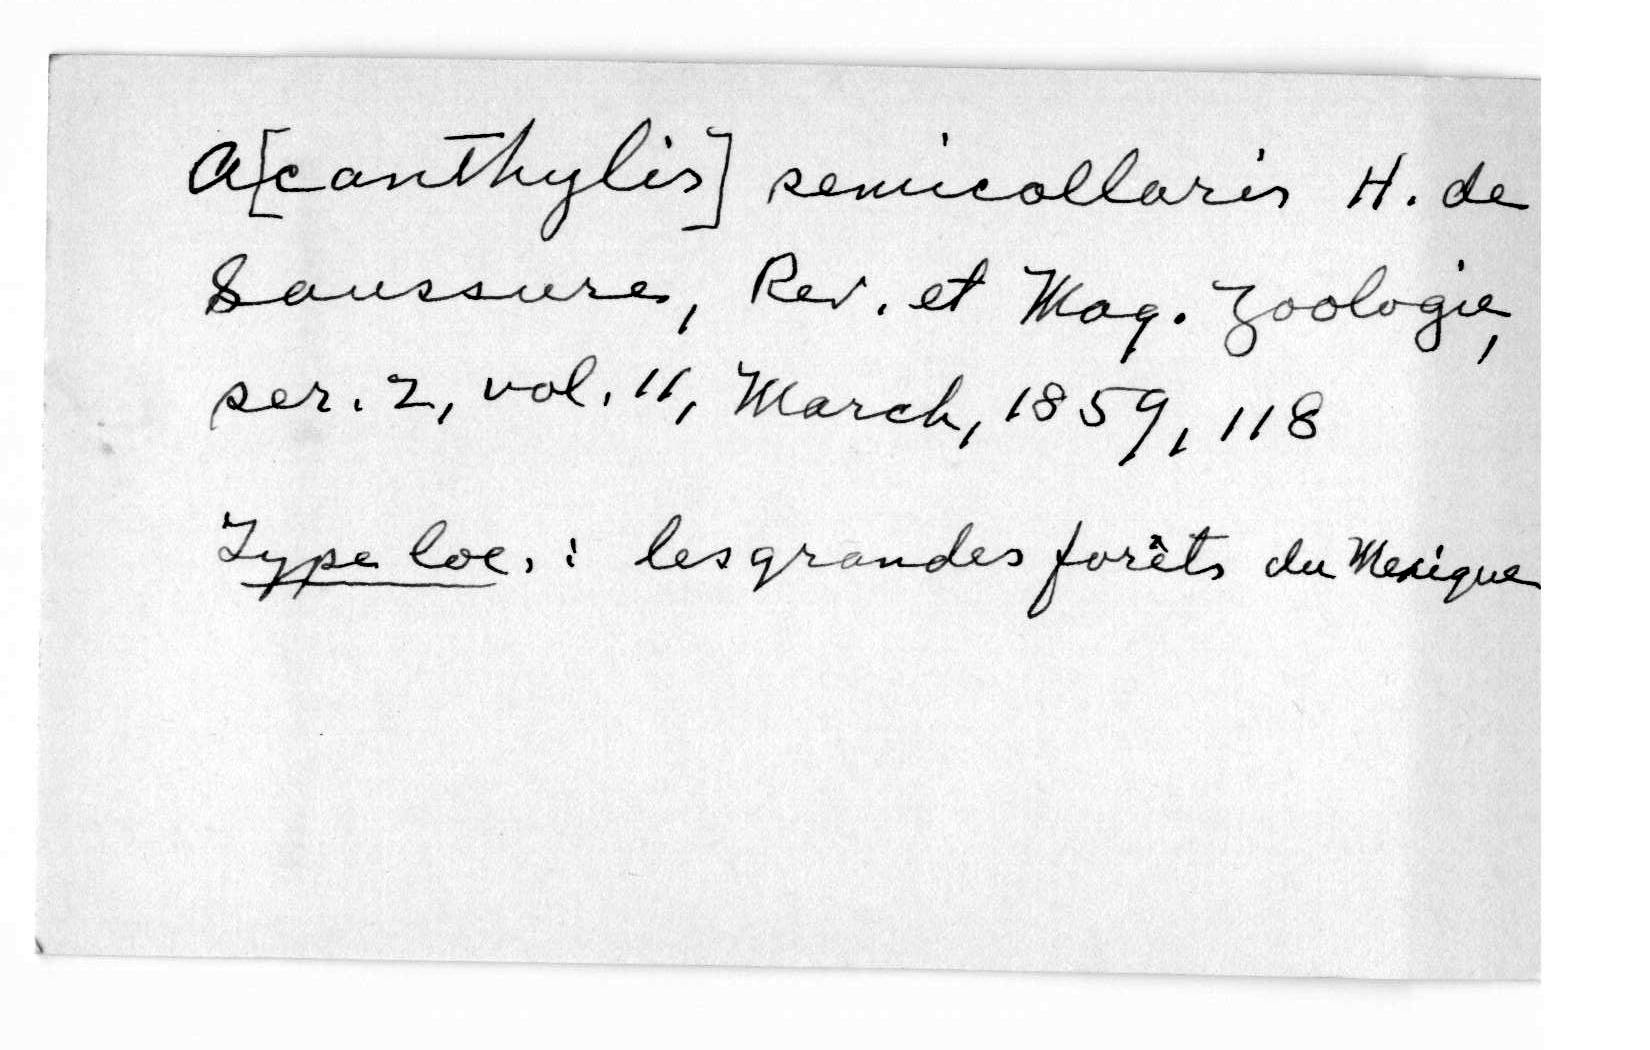 A[canthylis] semicollaris H. de
Saussure, Rev. et Mag. Zoologie,
ser. 2, vol. 11, March, 1859, 118
Type loc. : les grandes forêts du Mexique